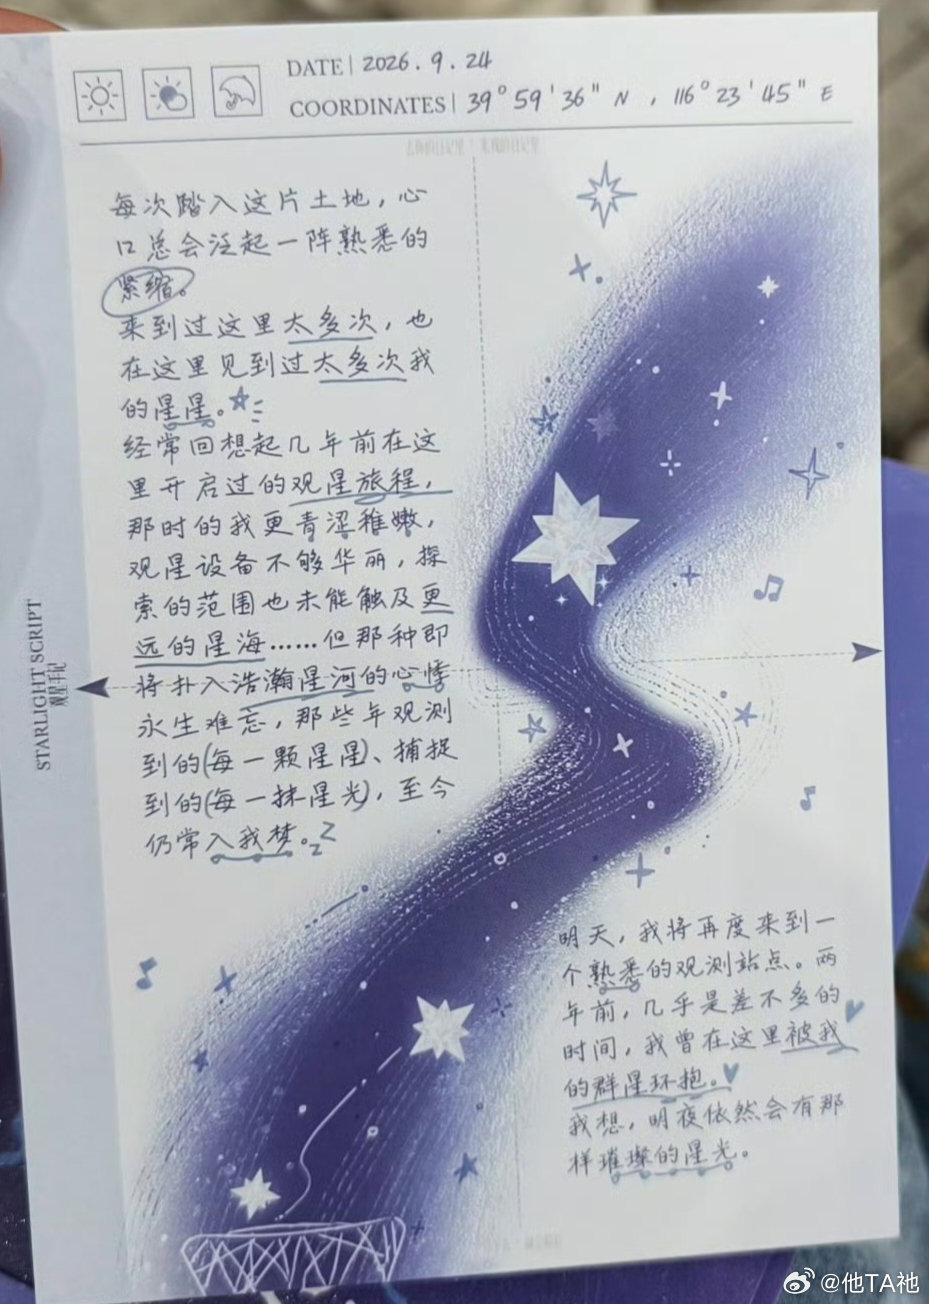 DATE | 2026.9.24
COORDINATES | 39°59'36" N , 116°23'45" E
每次踏入这片土地，心
口总会泛起一阵熟悉的
紧缩。
来到过这里太多次，也
在这里见到过太多次我
的星星。
经常回想起几年前在这
里开启过的观星旅程，
那时的我更青涩稚嫩，
观星设备不够华丽，探
索的范围也未能触及更
远的星海……但那种即
将扑入浩瀚星河的心悸
永生难忘，那些年观测
到的(每一颗星星)、捕捉
到的(每一抹星光)，至今
仍常入我梦。zz
STARLIGHT SCRIPT
观星手记
明天，我将再度来到一
个熟悉的观测站点。两
年前，几乎是差不多的
时间，我曾在这里被我
的群星环抱。
我想，明夜依然会有那
样璀璨的星光。
@他TA祂